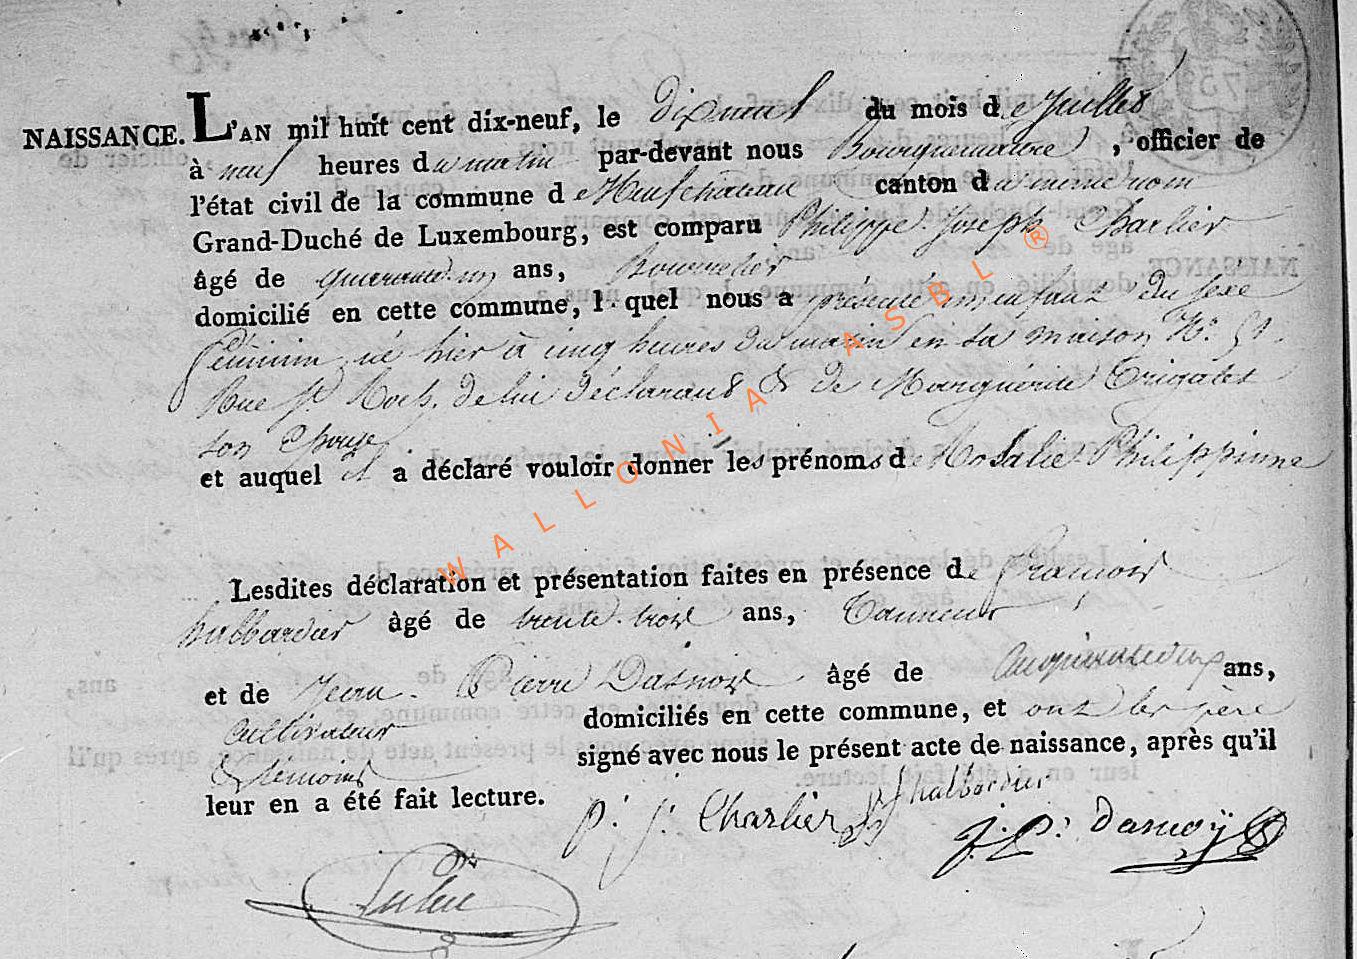 NAISSANCE. L'AN mil huit cent dix-neuf, le dixneuf du mois de Juillet
à neuf heures du matin par-devant nous Bourguemaitre, officier de
l'état civil de la commune de Neufchateau canton du même nom
Grand-Duché de Luxembourg, est comparu Philippe Joseph Charlier
âgé de quarante un ans, Bourrelier
domicilié en cette commune, l quel nous a présenté un enfant du sexe
féminin, né hier à cinq heures du matin en sa maison N° 51.
Rue St Roch, de lui déclarant & de Marguérite Trigalet
son Epouse
et auquel il a déclaré vouloir donner les prénoms de Rosalie Philippinne
Lesdites déclaration et présentation faites en présence de François
halbardier âgé de trente-trois ans, Tanneur
et de Jean-Pierre Dasnoy âgé de ans,
Cultivateur domiciliés en cette commune, et ont les père
& témoins signé avec nous le présent acte de naissance, après qu'il
leur en a été fait lecture.
P. J. Charlier f halbardier
J. P. Dasnoÿ
WALLONIA ASBL ®